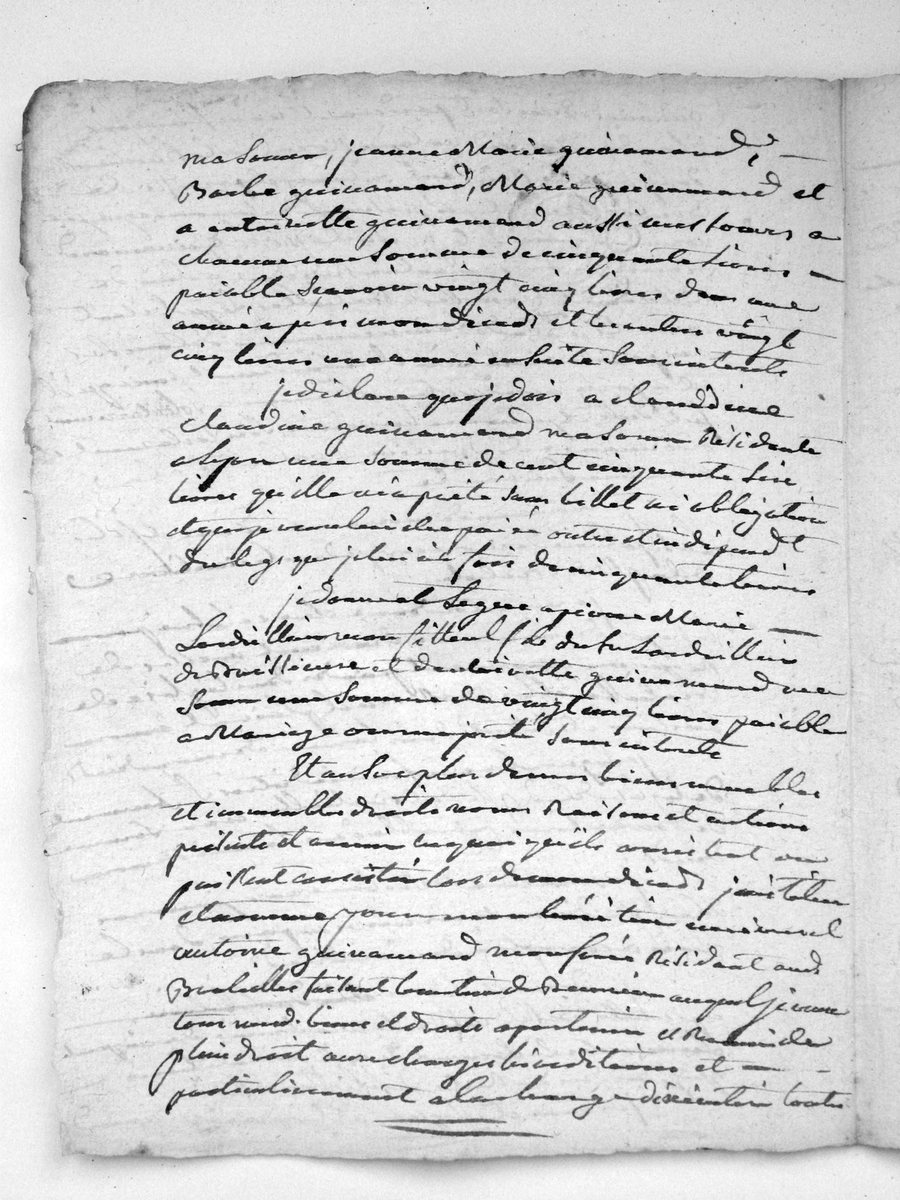 ma Soeur, jeanne Marie guinamand,
Barbe guinamand, Marie guinamand et
a antoinette guinamand aussi mes soeurs a
chacune une Somme de cinquante livres
païable Sçavoir vingt cinq livres dans une
année après mon décéds et les autres vingt
cinq livres une année ensuite Sans intérêts
je déclare que je dois a
claudine guinamand ma Soeur Résidente
a lyon une Somme de cent cinquante Six
livres qu'elle m'a preté Sans billet ni obligation
et que je veux lui être païé outre et independt
du legs que je lui ai fais de cinquante livres
je donne et Legue a pierre Marie
mon filleul fils de fu
de et de guinamand ma
Soeur une Somme de vingt cinq livres païable
a Mariage ou majorité Sans intérêts
Et au Surplus de mes biens meubles
et immeubles droits noms Raisons et actions
présents et avenir en quoi qu'ils consistent ou
puissent consister lors de mon décéds j'institue
et nomme pour mon héritier universel
antoine guinamand mon frère Résident aud
auquel je veux
tous mesd. biens et droits apartenir et
plein droit aux charges héréditaires et
particulièrement a la charge d'exécuter toutes